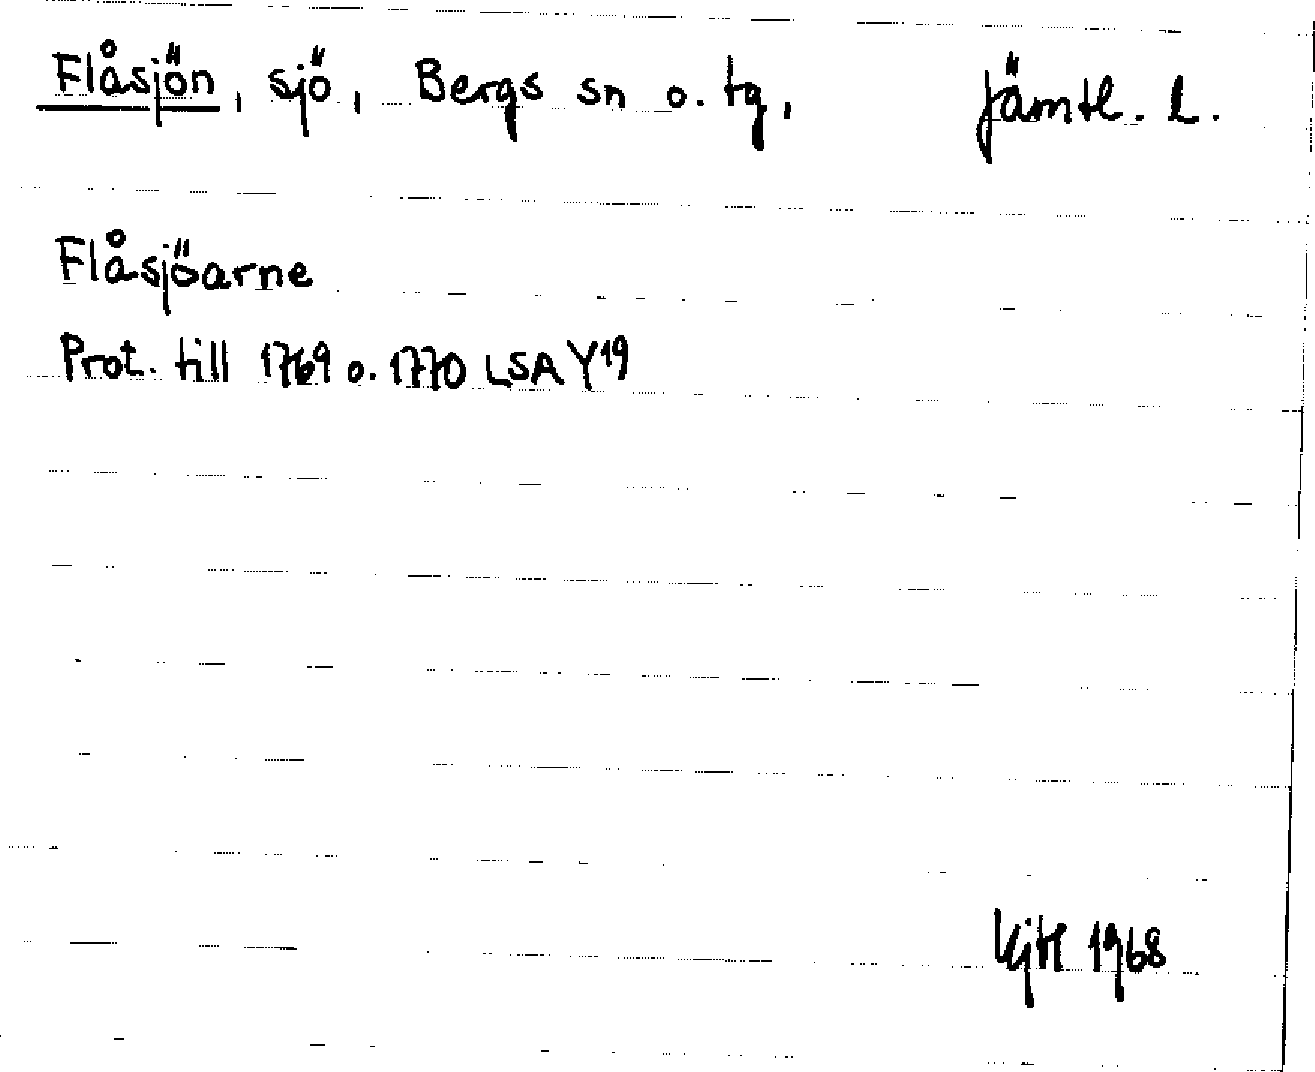 Flåsjön, sjö, Bergs sn o. tg, Jämtl. l.
Flåsjöarne
Prot. till 1769 o. 1770 LSA Y19
1968